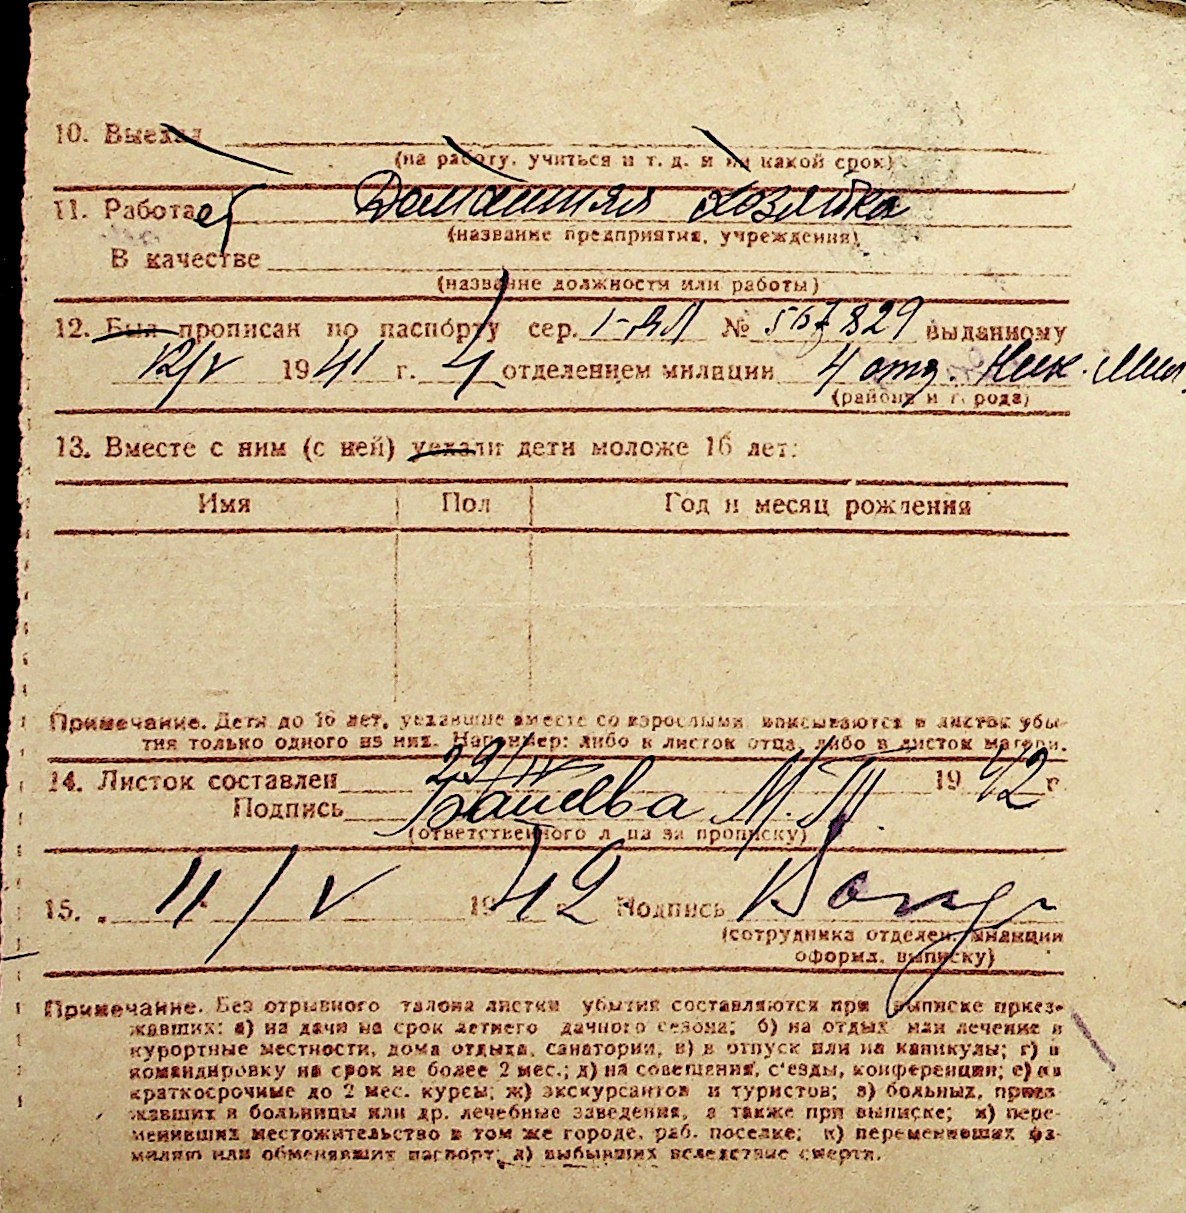 10. Выехал
(на работу, учиться и т. д. и на какой срок)
11. Работает Домашняя хозяйка
(название предприятия, учреждения)
В качестве
(название должности или работы)
12. Был прописан по паспорту сер. I-ВЛ № 567829 выданному
12/V 1941 г. 4 отделением милиции 4 отд. Ник. Мил.
(района и города)
13. Вместе с ним (с ней) уехали дети моложе 16 лет:
Имя Пол Год и месяц рождения
Примечание. Дети до 16 лет, уехавшие вместе со взрослыми вписываются в листок убы-
тия только одного из них. Например: либо в листок отца, либо в листок матери.
14. Листок составлен 29/IV 1942 г.
Подпись М. П.
(ответственного лица за прописку)
15. 11/V 1942 Подпись
(сотрудника отделен. милиции
оформл. выписку)
Примечание. Без отрывного талона листки убытия составляются при выписке приез-
жавших: а) на дачи на срок летнего дачного сезона; б) на отдых или лечение в
курортные местности, дома отдыха, санатории, в) в отпуск или на каникулы; г) в
командировку на срок не более 2 мес.; д) на совещения, с'езды, конференции; е) на
краткосрочные до 2 мес. курсы; ж) экскурсантов и туристов; з) больных, приез-
жавших в больницы или др. лечебные заведения, а также при выписке; и) пере-
менивших местожительство в том же городе, раб. поселке; к) переменивших фа-
милию или обменявших паспорт; л) выбывших вследствие смерти.